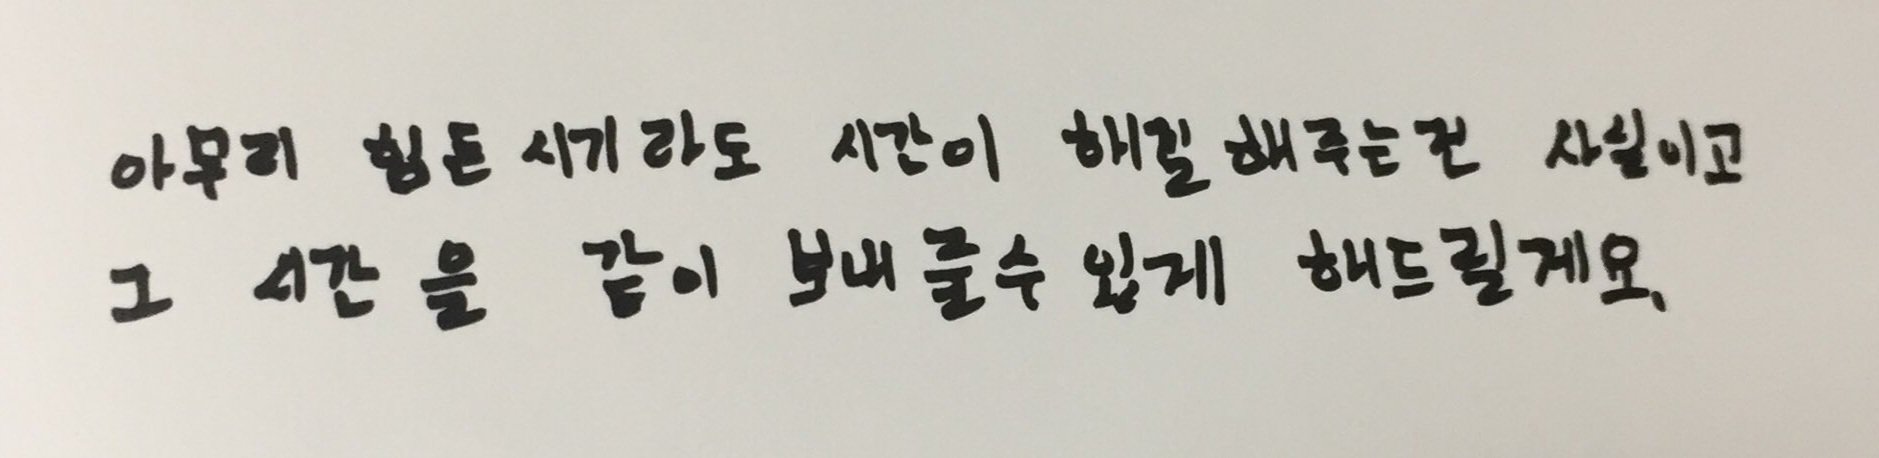 아무리 힘든 시기라도 시간이 해결해주는건 사실이고
그 시간을 같이 보내줄수 있게 해드릴게요.